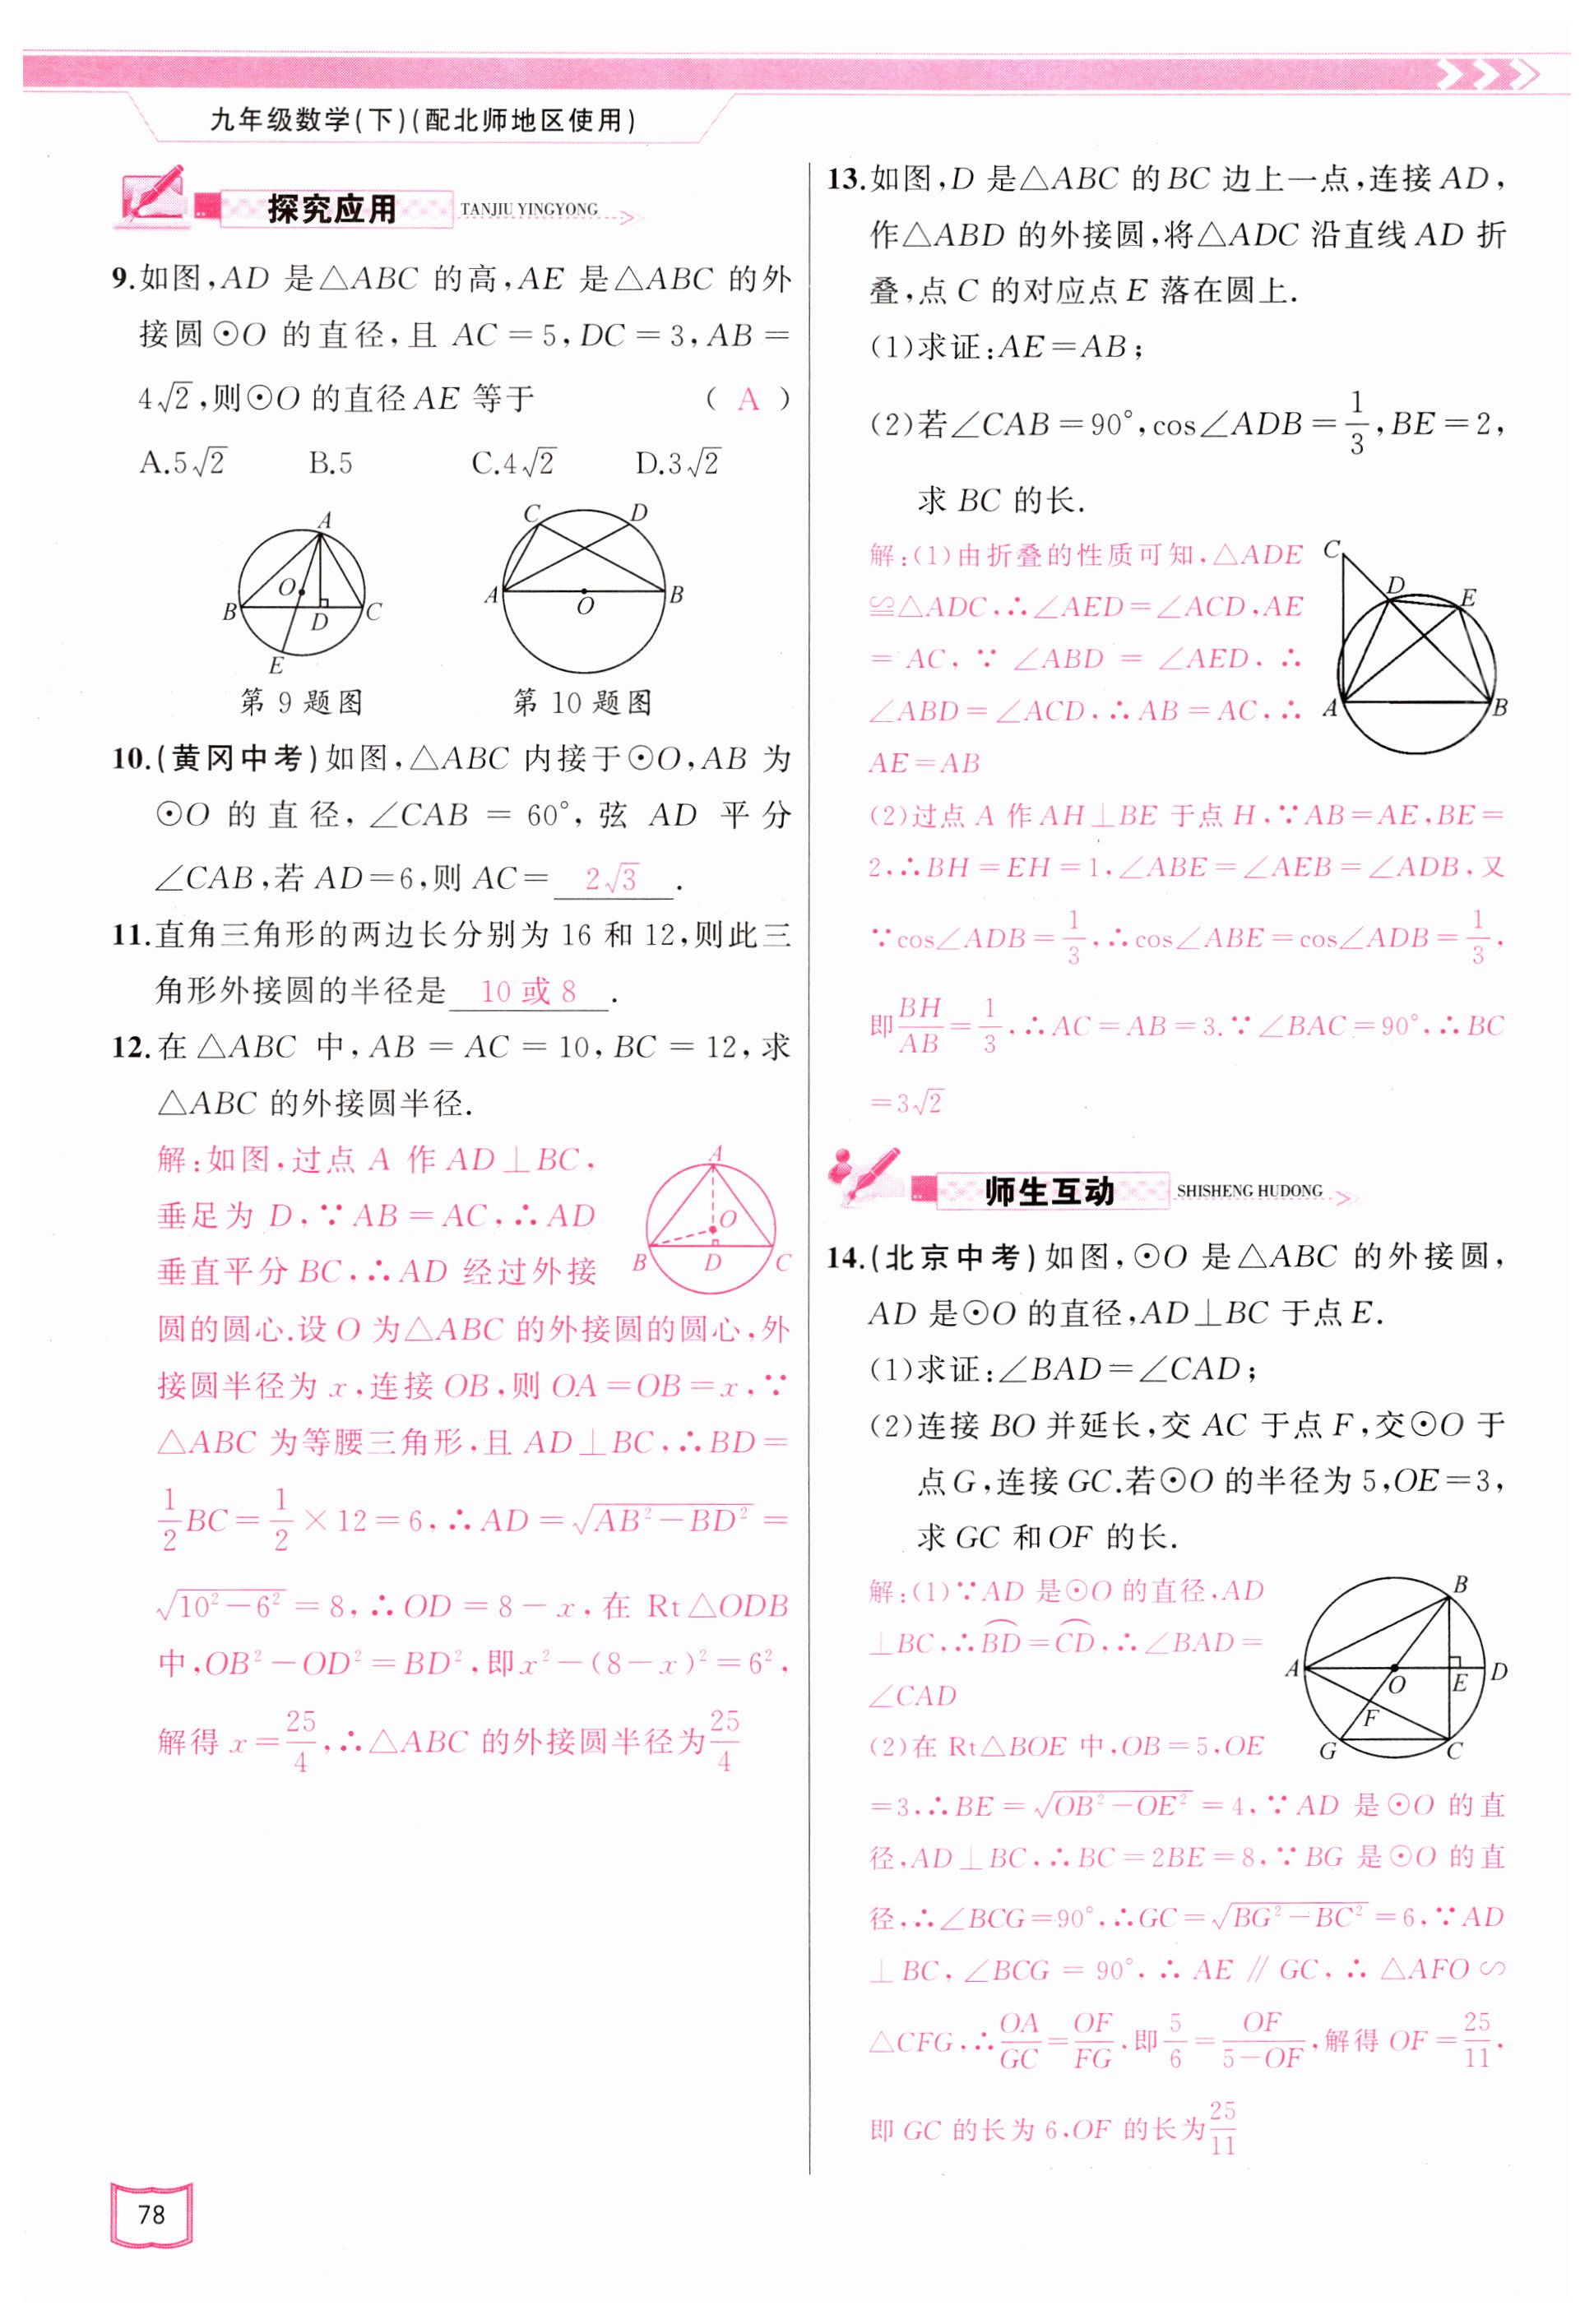 九年级数学(下)(配北师地区使用)
探究应用 TANJIU YINGYONG
9.如图,AD 是△ABC 的高,AE 是△ABC 的外
接圆⊙O 的直径,且 AC=5,DC=3,AB=
4√2,则⊙O 的直径AE 等于 ( A )
A.5√2 B.5 C.4√2 D.3√2
A
O
B
D
C
E
第 9 题图
C
D
A
O
B
第 10 题图
10.(黄冈中考)如图,△ABC 内接于⊙O,AB 为
⊙O 的直径,∠CAB = 60°,弦 AD 平分
∠CAB,若 AD=6,则 AC= 2√3 .
11.直角三角形的两边长分别为 16 和 12,则此三
角形外接圆的半径是 10 或 8 .
12.在△ABC 中,AB = AC = 10,BC = 12,求
△ABC 的外接圆半径.
解:如图,过点 A 作 AD⊥BC,
垂足为 D,∵AB=AC,∴AD
垂直平分 BC,∴AD 经过外接
A
O
B
D
C
圆的圆心.设 O 为△ABC 的外接圆的圆心,外
接圆半径为 x,连接 OB,则 OA=OB=x,∵
△ABC 为等腰三角形,且 AD⊥BC,∴BD=
1/2 BC=1/2×12=6,∴AD=√(AB²−BD²)=
√(10²−6²)=8,∴OD=8−x,在 Rt△ODB
中,OB²−OD²=BD²,即x²−(8−x)²=6²,
解得 x=25/4,∴△ABC 的外接圆半径为25/4
78
13.如图,D 是△ABC 的BC 边上一点,连接 AD,
作△ABD 的外接圆,将△ADC 沿直线 AD 折
叠,点 C 的对应点E 落在圆上.
(1)求证:AE=AB;
(2)若∠CAB=90°,cos∠ADB=1/3,BE=2,
求 BC 的长.
解:(1)由折叠的性质可知,△ADE
≌△ADC,∴∠AED=∠ACD,AE
=AC,∵∠ABD=∠AED,∴
∠ABD=∠ACD,∴AB=AC,∴
AE=AB
C
D
E
A
B
(2)过点 A 作 AH⊥BE 于点 H,∵AB=AE,BE=
2,∴BH=EH=1,∠ABE=∠AEB=∠ADB,又
∵cos∠ADB=1/3,∴cos∠ABE=cos∠ADB=1/3,
即BH/AB=1/3,∴AC=AB=3.∵∠BAC=90°,∴BC
=3√2
师生互动 SHISHENG HUDONG
14.(北京中考)如图,⊙O 是△ABC 的外接圆,
AD 是⊙O 的直径,AD⊥BC 于点 E.
(1)求证:∠BAD=∠CAD;
(2)连接 BO 并延长,交 AC 于点 F,交⊙O 于
点G,连接 GC.若⊙O 的半径为 5,OE=3,
求 GC 和OF 的长.
解:(1)∵AD 是⊙O 的直径,AD
⊥BC,∴B͡D=C͡D,∴∠BAD=
∠CAD
(2)在 Rt△BOE 中,OB=5,OE
B
A
O
E
D
F
G
C
=3,∴BE=√(OB²−OE²)=4,∵AD 是⊙O 的直
径,AD⊥BC,∴BC=2BE=8,∵BG 是⊙O 的直
径,∴∠BCG=90°,∴GC=√(BG²−BC²)=6,∵AD
⊥BC,∠BCG=90°,∴AE∥GC,∴△AFO∽
△CFG,∴OA/GC=OF/FG,即5/6=OF/(5−OF),解得 OF=25/11,
即 GC 的长为 6,OF 的长为25/11